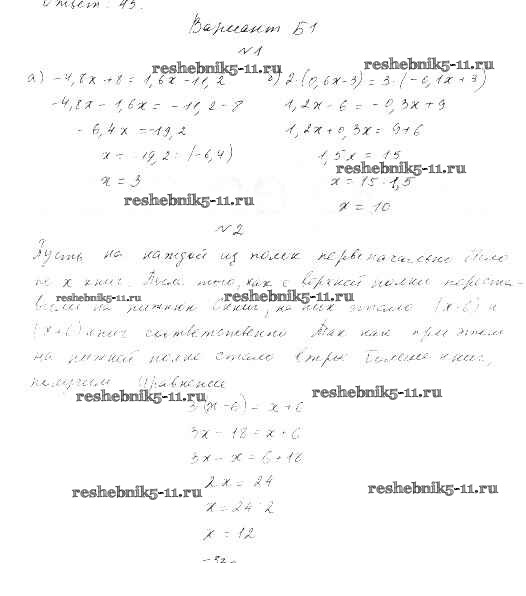 Ответ: 45.
Вариант Б1
№1
а) -4,8x+8=1,6x-11,2 б) 2·(0,6x-3)=3·(-0,1x+3)
-4,8x-1,6x=-11,2-8 1,2x-6=-0,3x+9
-6,4x=-19,2 1,2x+0,3x=9+6
x=-19,2:(-6,4) 1,5x=15
x=3 x=15:1,5
x=10
№2
Пусть на каждой из полок первоначально было
по x книг. После того, как с верхней полки переста-
вили на нижнюю 6 книг, на них стало (x-6) и
(x+6) книг соответственно. Так как при этом
на нижней полке стало втрое больше книг,
получим уравнение
3(x-6)=x+6
3x-18=x+6
3x-x=6+18
2x=24
x=24:2
x=12
-32-
reshebnik5-11.ru
reshebnik5-11.ru
reshebnik5-11.ru
reshebnik5-11.ru
reshebnik5-11.ru
reshebnik5-11.ru
reshebnik5-11.ru
reshebnik5-11.ru
reshebnik5-11.ru
reshebnik5-11.ru